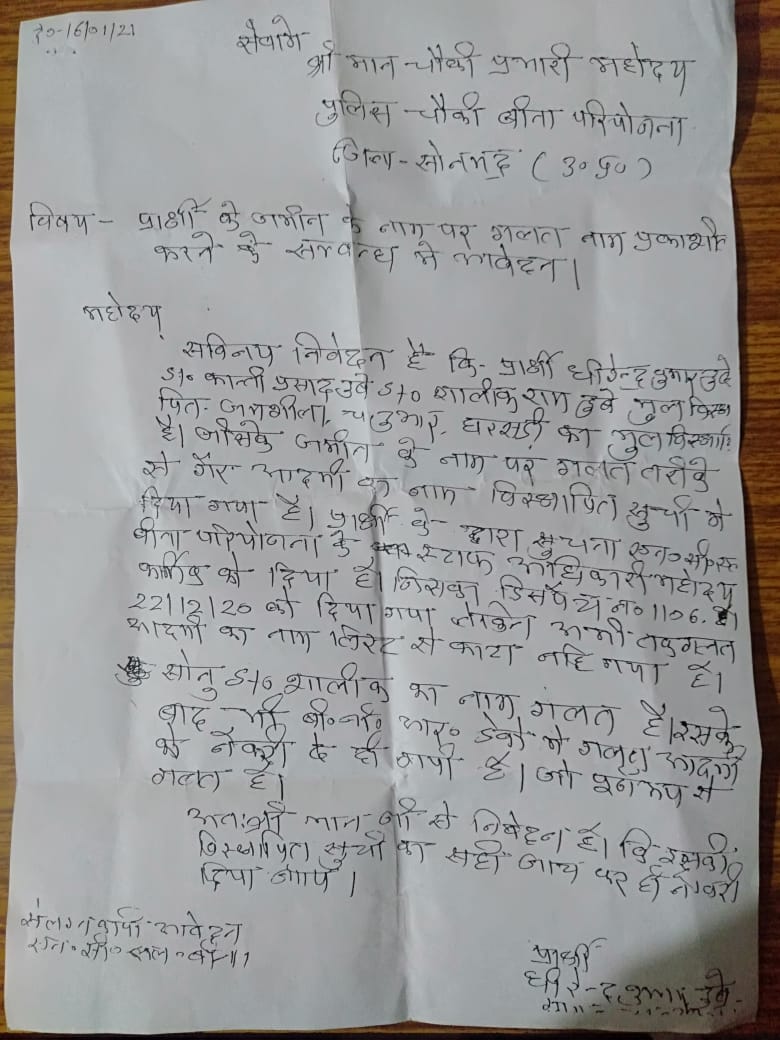 द०-16/01/21
सेवामे
श्री मान चौकी प्रभारी महोदय
पुलिस चौकी बीना परियोजना
जिला - सोनभद्र ( उ० प्र० )
विषय - प्रार्थी के जमीन के नाम पर गलत नाम
करने के सम्बन्ध मे आवेदन।
महोदय
सविनय निवेदन है कि प्रार्थी धीरेन्द्र कुमार दुबे
S/o कान्ती प्रसाद दुबे S/o शालीक राम दुबे मुल
जमशीला, घरसड़ी का मुल
है। जीसके जमीन के नाम पर गलत तरीके
से गैर आदमी का नाम विस्थापित सुची मे
दिया गया है। प्रार्थी के द्वारा सुचना
बीना परियोजना के स्टाफ अधिकारी महोदय
कार्मिक को दिया है। जिसका डिसपैच न० 1106. है।
22/12/20 को दिया गया लेकिन अभी तक गलत
आदमी का नाम लिस्ट से काटा नहि गया है।
सोनु S/o शालीक का नाम गलत है। इसके
बाद भी बी० आर० मे गलत आदमी
को नौकरी दे दी गयी है। जो पुर्ण रूप से
गलत है।
अतः श्री मान जी से निवेदन है। कि इसकी
विस्थापित सुची का सही जाच कर ही नौकरी
दिया जाय।
संलग्न कापी आवेदन
एन० सी० एल०
प्रार्थी
धीरेन्द्र कुमार दुबे